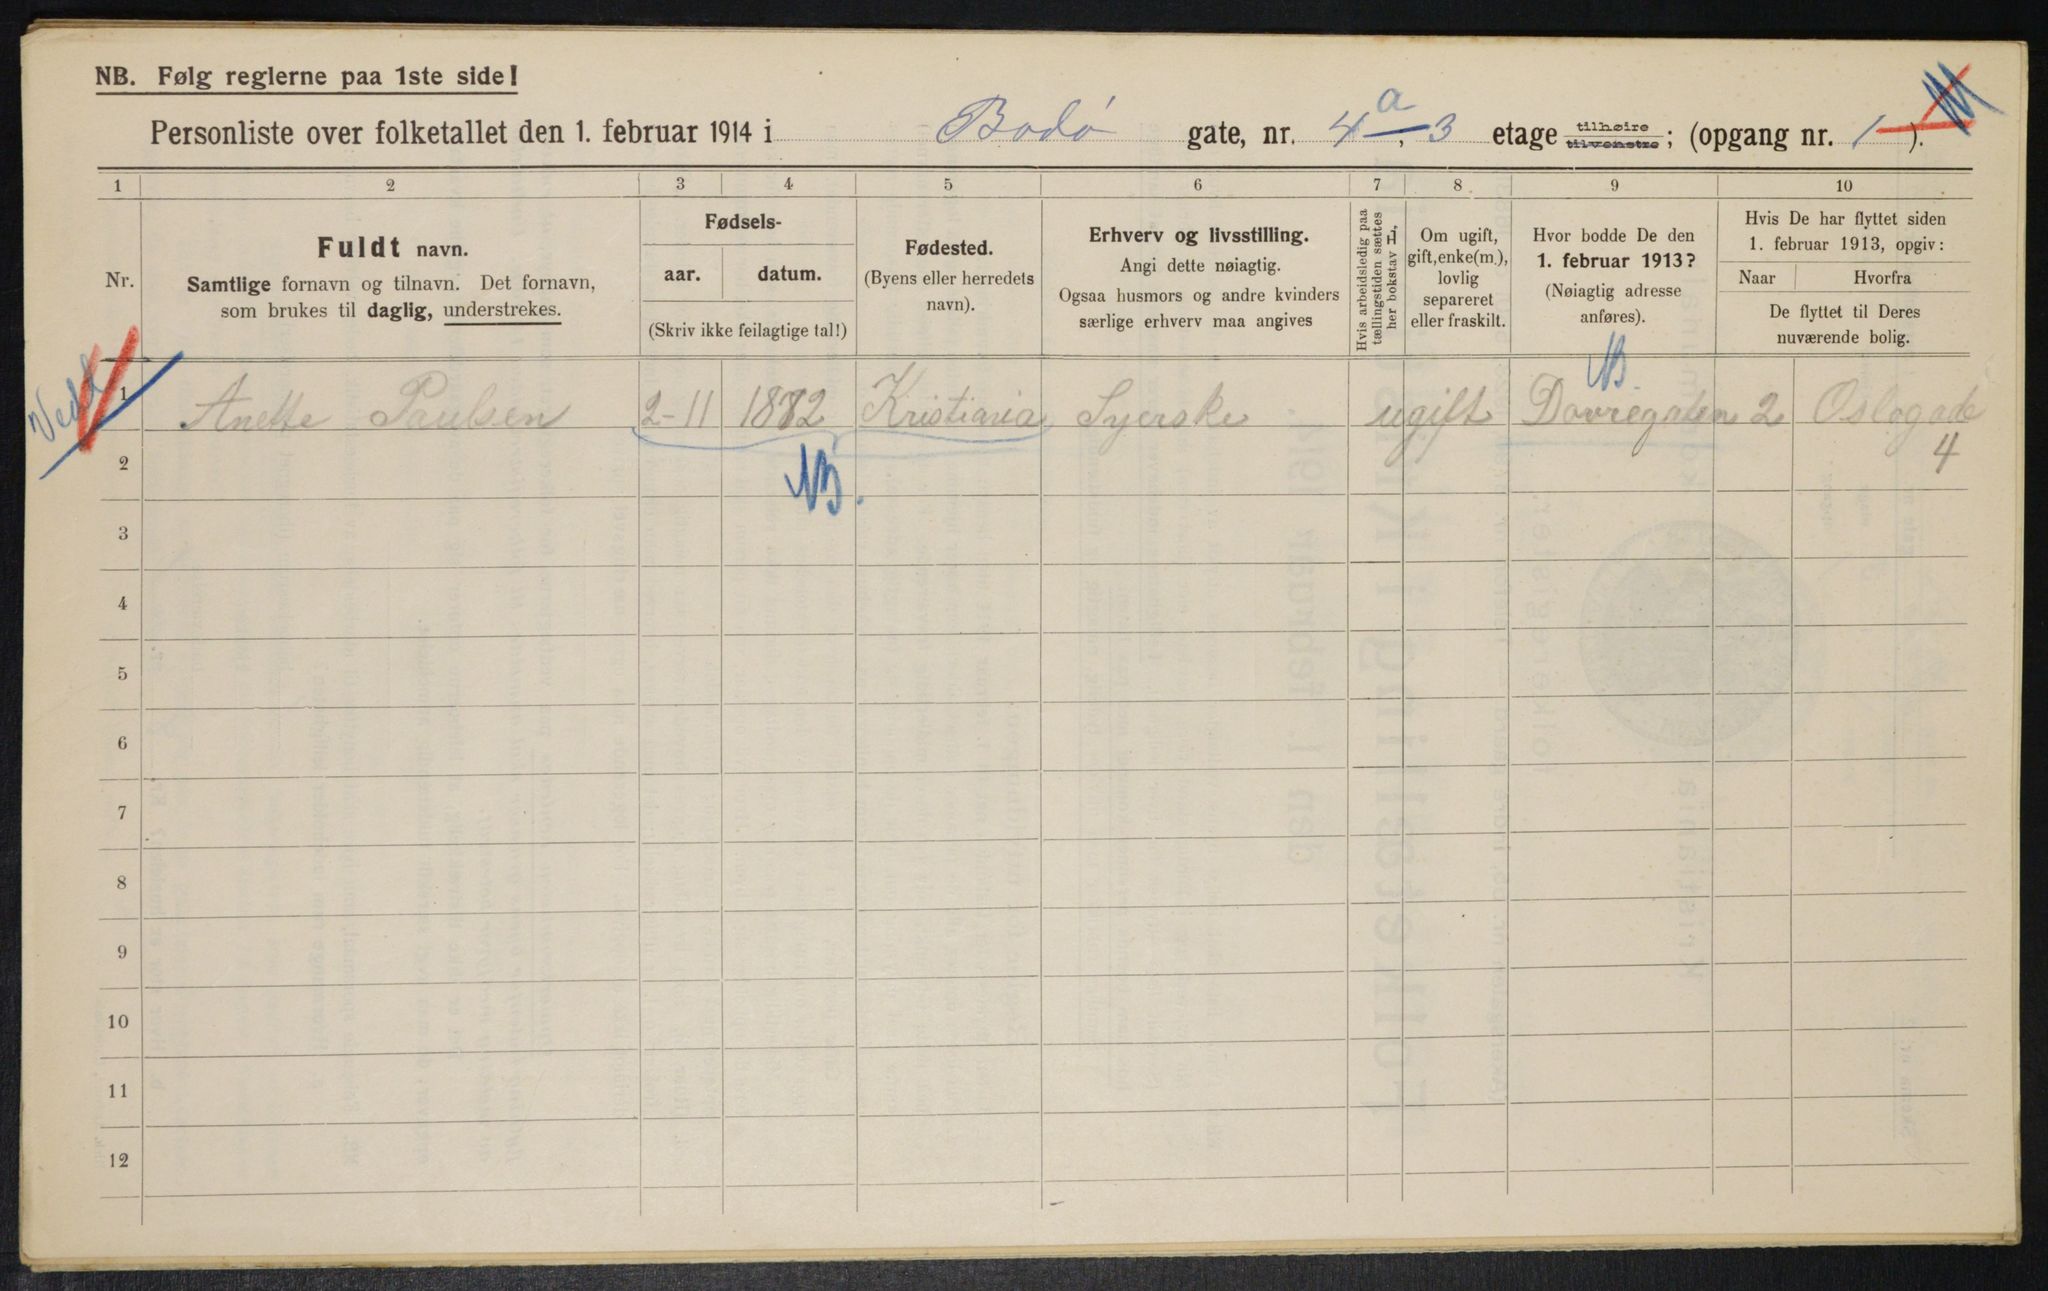 NB. Følg reglerne paa 1ste side!
Personliste over folketallet den 1. februar 1914 i Bodø gate, nr. 4 a, 3 etage tilhøire tilvenstre; (opgang nr. 1).
1 2 3 4 5 6 7 8 9 10
Nr.
Fuldt navn.
Samtlige fornavn og tilnavn. Det fornavn,
som brukes til daglig, understrekes.
Fødsels-
aar. datum.
(Skriv ikke feilagtige tal!)
Fødested.
(Byens eller herredets
navn).
Erhverv og livsstilling.
Angi dette nøiagtig.
Ogsaa husmors og andre kvinders
særlige erhverv maa angives
Hvis arbeidsledig paa
tællingstiden sættes
her bokstav L.
Om ugift,
gift, enke(m.),
lovlig
separeret
eller fraskilt.
Hvor bodde De den
1. februar 1913?
(Nøiagtig adresse
anføres).
Hvis De har flyttet siden
1. februar 1913, opgiv:
Naar Hvorfra
De flyttet til Deres
nuværende bolig.
NB.
1 Anette Paulsen 2-11 1882 Kristiania Syerske ugift Dovregaten 2 Oslogade
4
2
NB.
3
4
5
6
7
8
9
10
11
12